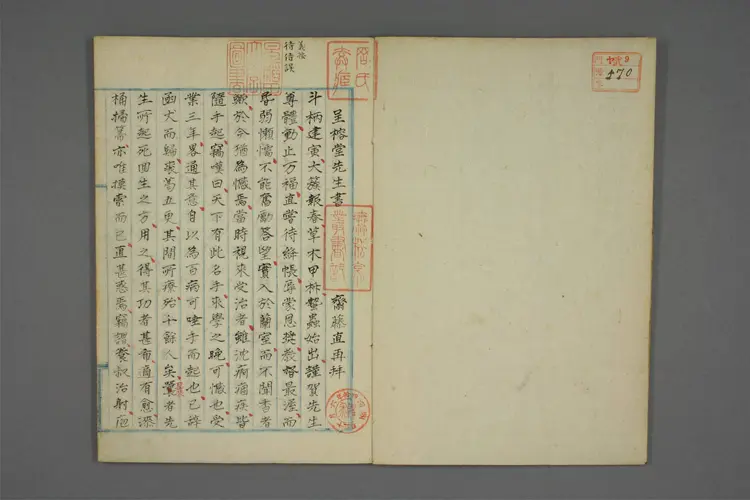 呈榕堂先生書 齋藤直再拜
斗柄建寅大簇報春草木甲柝蟄蟲始出謹賀先生
尊體動止万福直嘗侍絳帳辱蒙恩援教督最渥而
孱弱懶惰不能奮勵答望實入於蘭室而不聞香者
歟於今猶為憾焉當時視來受治者雖沈痾痼疾皆
隨手起竊嘆曰天下有此名手來學之晚可憾也受
業三年畧通其意自以為百病可唾手而起也已辞
函丈而歸裘葛五更其間所療殆十餘人矣曩者先
生所起死回生之方用之得其功者甚希適有愈深
桶摘蓋亦唯摸索而已直甚惑焉竊謂養叔治射庖
義恐
待侍誤
9
470